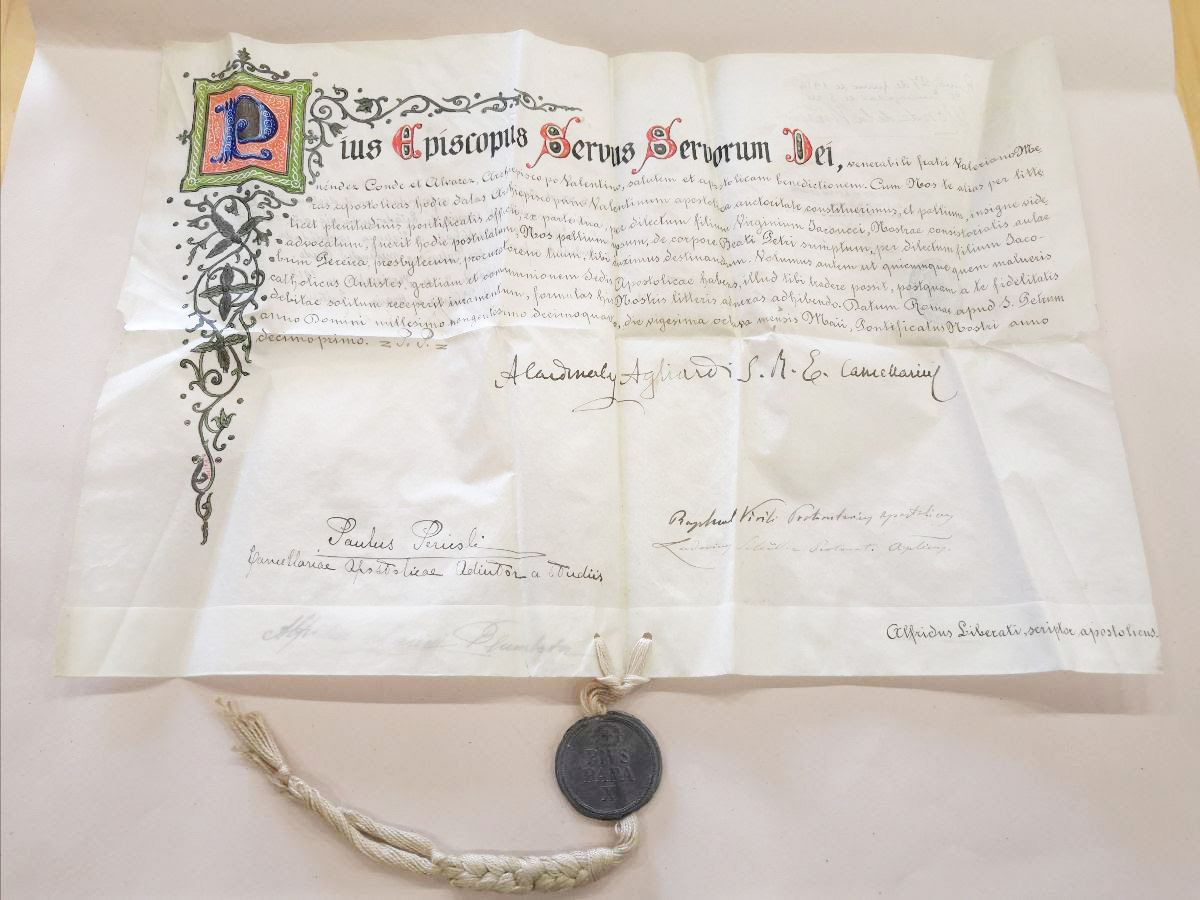 Pius Episcopus Servus Servorum Dei, venerabili fratri Valeriano Me
néndez Conde et Alvarez, Archiepiscopo Valentino, salutem et apostolicam benedictionem. Cum Nos te alias per litte
ras apostolicas hodie datas Archiepiscopum Valentinum apostolica auctoritate constituerimus, et pallium, insigne vide
licet plenitudinis pontificalis officii, ex parte tua per dilectum filium Virginium Jacoucci, Nostrae consistorialis aulae
advocatum, fuerit hodie postulatum, Nos pallium ipsum, de corpore Beati Petri sumptum, per dilectum filium Jaco-
bum Pereira, presbyterum, procuratorem tuum, tibi duximus destinandum. Volumus autem ut quicumque quem malueris
catholicus Antistes, gratiam et communionem Sedis Apostolicae habens, illud tibi tradere possit, postquam a te fidelitatis
debitae solitum receperit iuramentum, formulas his Nostris litteris adhibendo. Datum Romae, apud S. Petrum
anno Domini millesimo nongentesimo decimoquarto, die vigesima octava mensis Maii, Pontificatus Nostri anno
decimoprimo.
A Cardinalis Agliardi S. R. E. Cancellarius
Raphael Virili Protonotarius apostolicus
Paulus Pericoli
Cancellariae Apostolicae Adiutor a studiis
Alfridus Liberati, scriptor apostolicus.
PIVS
PAPA
X